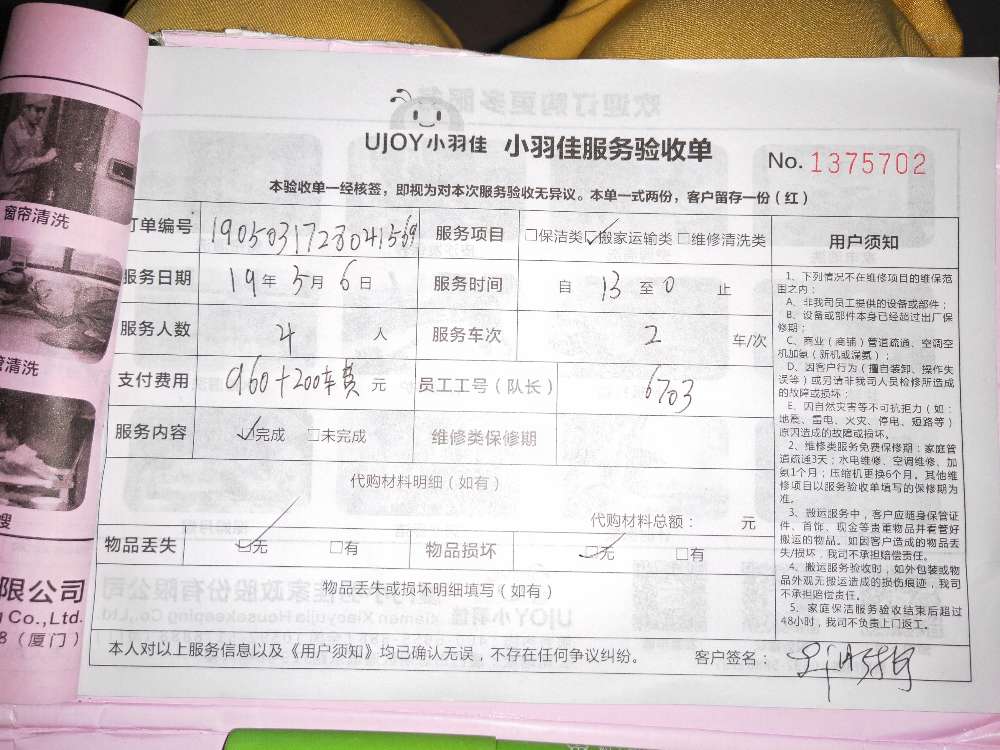 UJOY小羽佳 小羽佳服务验收单 No. 1375702
本验收单一经核签，即视为对本次服务验收无异议。本单一式两份，客户留存一份（红）
订单编号 服务项目 □保洁类 ☑搬家运输类 □维修清洗类
服务日期 19年5月6日 服务时间 自 13 至 0 止
服务人数 4 人 服务车次 2 车/次
支付费用 960+200车费 元 员工工号（队长） 6703
服务内容 ☑完成 □未完成 维修类保修期
代购材料明细（如有）
代购材料总额： 元
物品丢失 ☑无 □有 物品损坏 ☑无 □有
物品丢失或损坏明细填写（如有）
本人对以上服务信息以及《用户须知》均已确认无误，不存在任何争议纠纷。 客户签名：
用户须知
1、下列情况不在维修项目的维保范
围之内：
A、非我司员工提供的设备或部件；
B、设备或部件本身已经超过出厂保
修期；
C、商业（商铺）管道疏通、空调空
机加氨（新机或漏氨）；
D、因客户行为（擅自装卸、操作失
误等）或另请非我司人员检修所造成
的故障或损坏；
E、因自然灾害等不可抗拒力（如：
地震、雷电、火灾、停电、短路等）
原因造成的故障或损坏。
2、维修类服务免费保修期：家庭管
道疏通3天；水电维修、空调维修、加
氨1个月；压缩机更换6个月。其他维
修项目以服务验收单填写的保修期为
准。
3、搬运服务中，客户应随身保管证
件、首饰、现金等贵重物品并看管好
搬运的物品。如因客户造成的物品丢
失/损坏，我司不承担赔偿责任。
4、搬运服务验收时，如外包装或物
品外观无搬运造成的损伤痕迹，我司
不承担赔偿责任。
5、家庭保洁服务验收结束后超过
48小时，我司不负责上门返工。
窗帘清洗
管清洗
限公司
Co.,Ltd.
8（厦门）